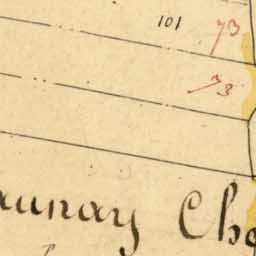 101 73
73
aunay Cha